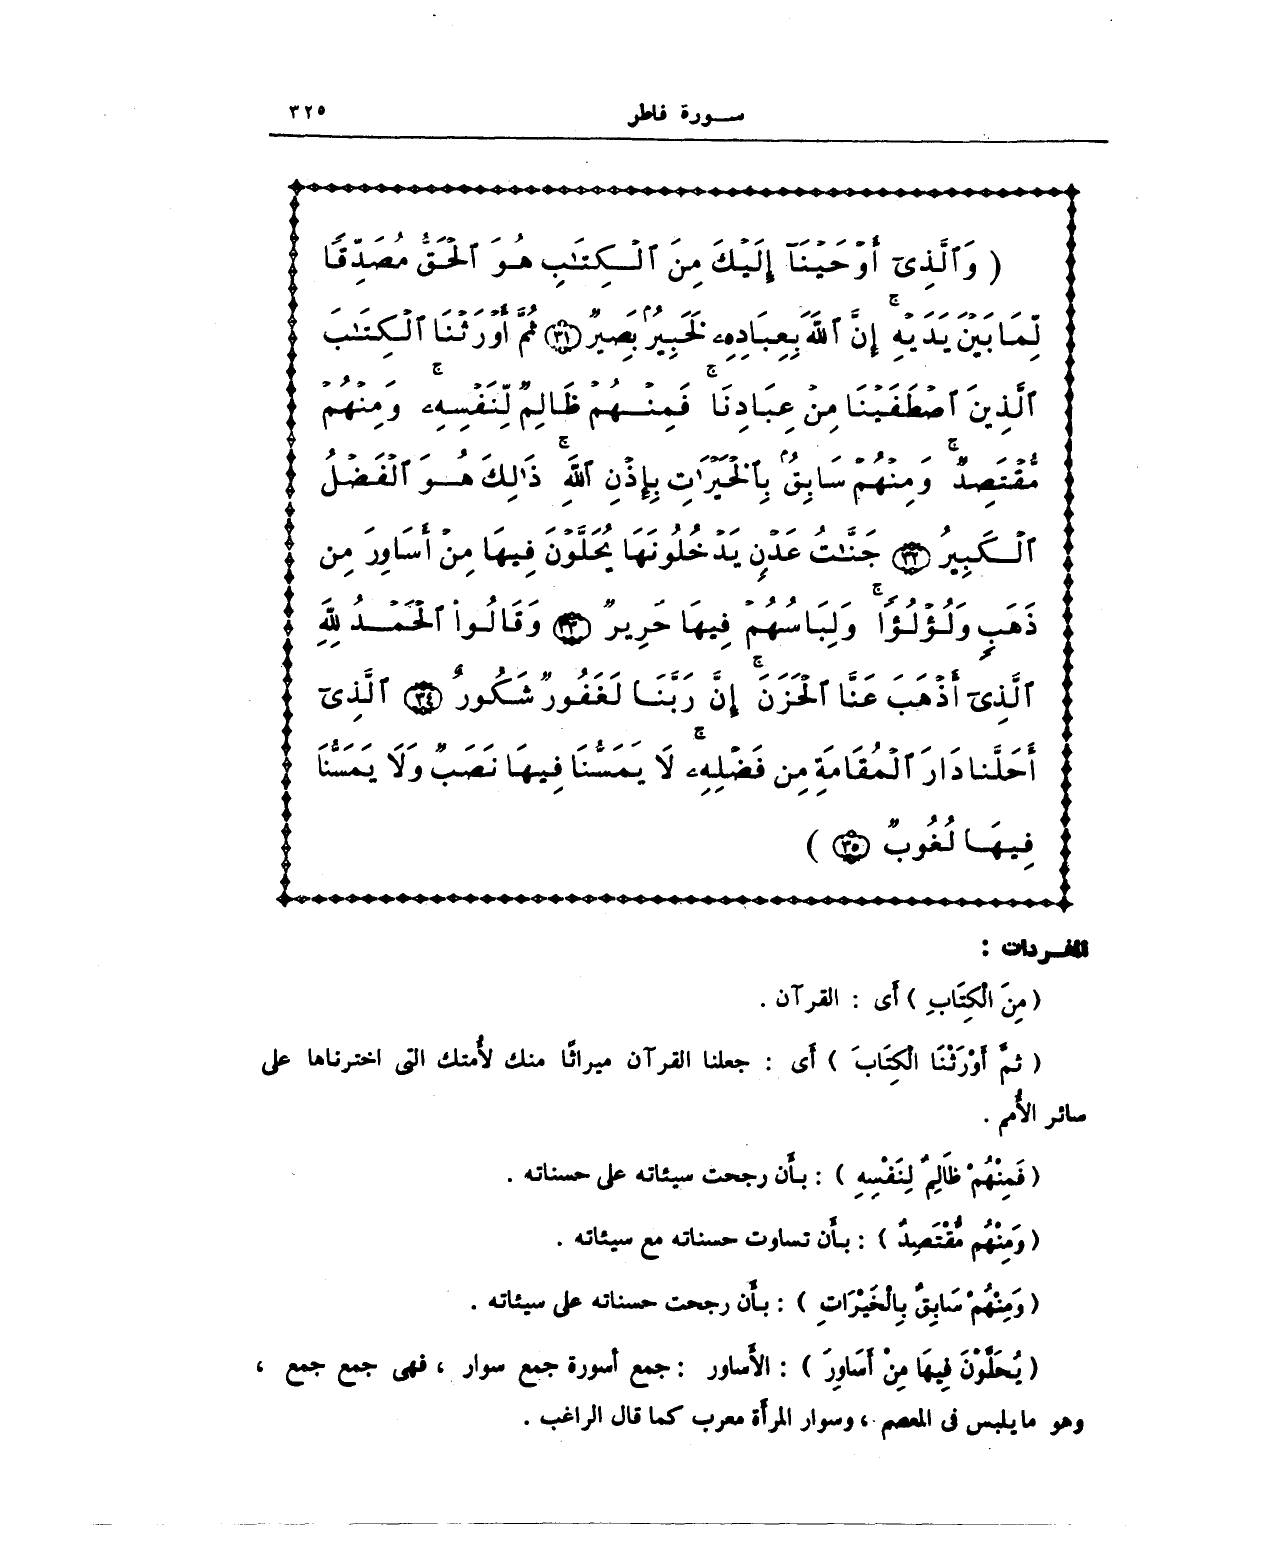 سورة فاطر ٣٢٥
( وَٱلَّذِىٓ أَوْحَيْنَآ إِلَيْكَ مِنَ ٱلْكِتَٰبِ هُوَ ٱلْحَقُّ مُصَدِّقًا
لِّمَا بَيْنَ يَدَيْهِ ۚ إِنَّ ٱللَّهَ بِعِبَادِهِۦ لَخَبِيرٌۢ بَصِيرٌ ٣١ ثُمَّ أَوْرَثْنَا ٱلْكِتَٰبَ
ٱلَّذِينَ ٱصْطَفَيْنَا مِنْ عِبَادِنَا ۖ فَمِنْهُمْ ظَالِمٌ لِّنَفْسِهِۦ ۚ وَمِنْهُم
مُّقْتَصِدٌ ۚ وَمِنْهُمْ سَابِقٌۢ بِٱلْخَيْرَٰتِ بِإِذْنِ ٱللَّهِ ۚ ذَٰلِكَ هُوَ ٱلْفَضْلُ
ٱلْكَبِيرُ ٣٢ جَنَّٰتُ عَدْنٍ يَدْخُلُونَهَا يُحَلَّوْنَ فِيهَا مِنْ أَسَاوِرَ مِن
ذَهَبٍ وَلُؤْلُؤًا ۚ وَلِبَاسُهُمْ فِيهَا حَرِيرٌ ٣٣ وَقَالُوا۟ ٱلْحَمْدُ لِلَّهِ
ٱلَّذِىٓ أَذْهَبَ عَنَّا ٱلْحَزَنَ ۚ إِنَّ رَبَّنَا لَغَفُورٌ شَكُورٌ ٣٤ ٱلَّذِىٓ
أَحَلَّنَا دَارَ ٱلْمُقَامَةِ مِن فَضْلِهِۦ ۚ لَا يَمَسُّنَا فِيهَا نَصَبٌ وَلَا يَمَسُّنَا
فِيهَا لُغُوبٌ ٣٥ )
المفردات :
( مِنَ الْكِتَابِ ) أَى : القرآن .
( ثُمَّ أَوْرَثْنَا الْكِتَابَ ) أَى : جعلنا القرآن ميراثًا منك لأُمتك التى اخترناها على
سائر الأُمم .
( فَمِنْهُمْ ظَالِمٌ لِنَفْسِهِ ) : بأَن رجحت سيئاته على حسناته .
( وَمِنْهُم مُّقْتَصِدٌ ) : بأَن تساوت حسناته مع سيئاته .
( وَمِنْهُمْ سَابِقٌ بِالْخَيْرَاتِ ) : بأَن رجحت حسناته على سيئاته .
( يُحَلَّوْنَ فِيهَا مِنْ أَسَاوِرَ ) : الأَساور : جمع أسورة جمع سوار ، فهى جمع جمع ،
وهو ما يلبس فى المعصم ، وسوار المرأَة معرب كما قال الراغب .